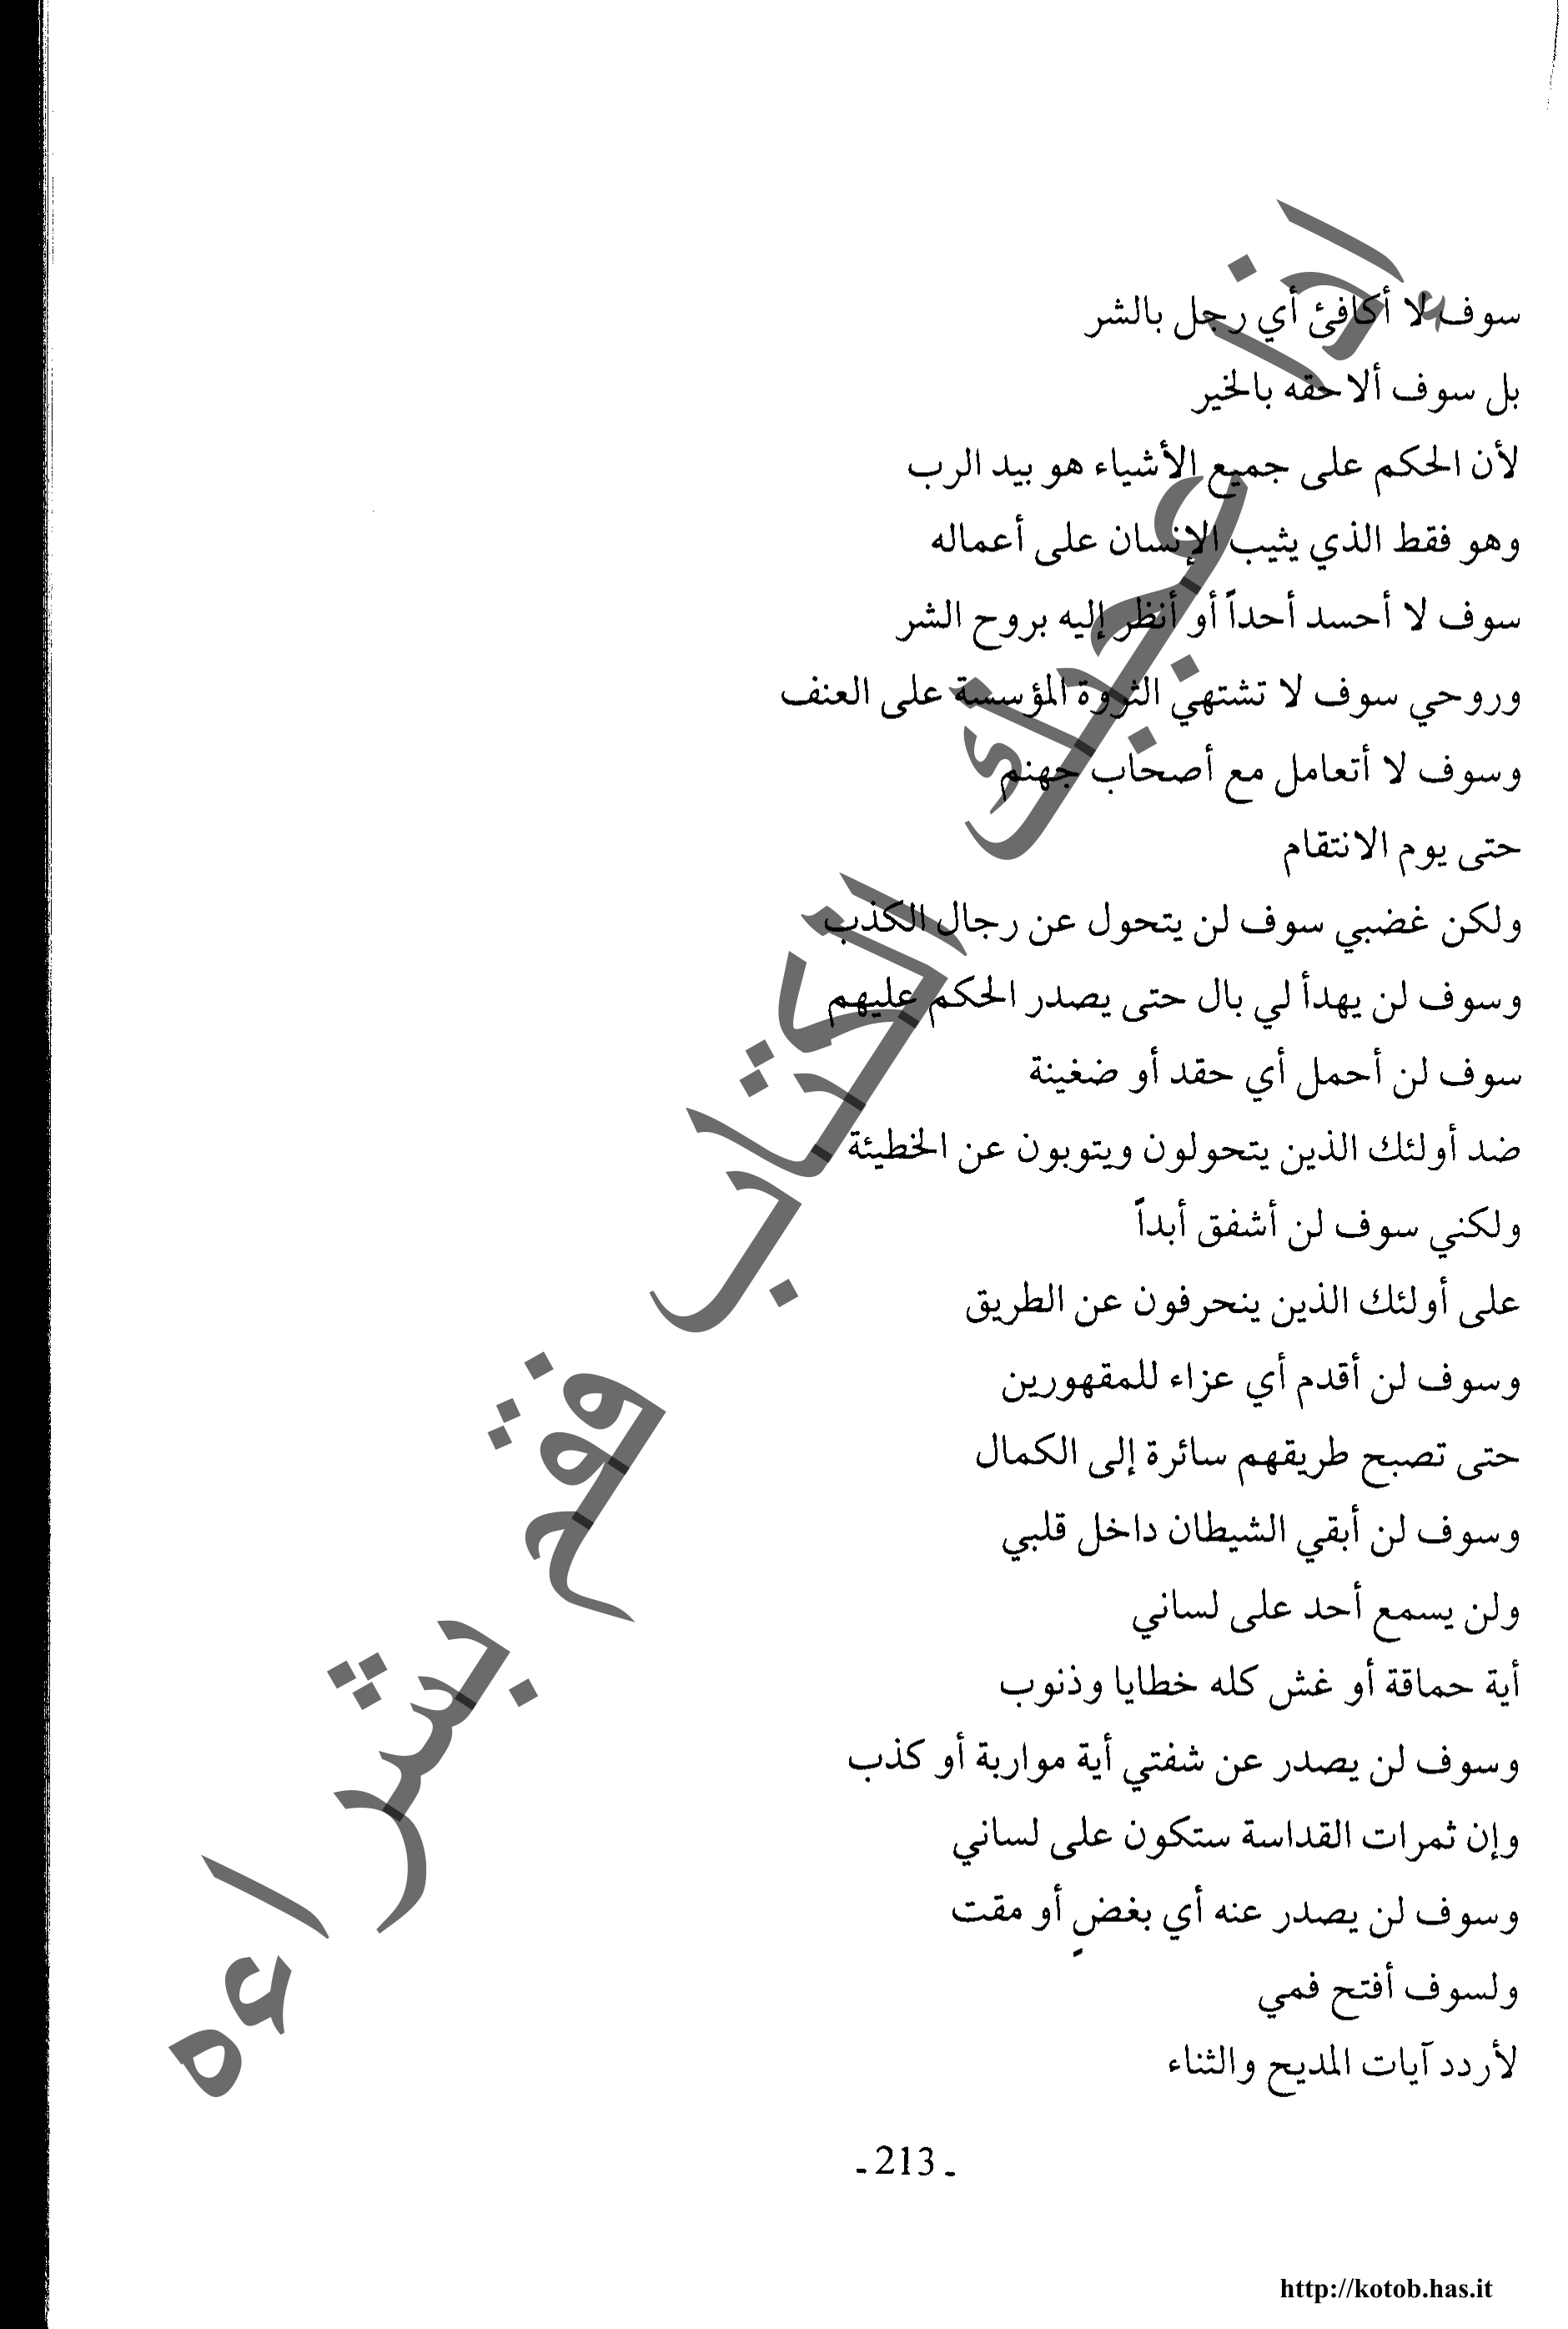 سوف لا أكافئ أي رجل بالشر
بل سوف ألاحقه بالخير
لأن الحكم على جميع الأشياء هو بيد الرب
وهو فقط الذي يثيب الإنسان على أعماله
سوف لا أحسد أحداً أو أنظر إليه بروح الشر
وروحي سوف لا تشتهي الثروة المؤسسة على العنف
وسوف لا أتعامل مع أصحاب جهنم
حتى يوم الانتقام
ولكن غضبي سوف لن يتحول عن رجال الكذب
وسوف لن يهدأ لي بال حتى يصدر الحكم عليهم
سوف لن أحمل أي حقد أو ضغينة
ضد أولئك الذين يتحولون ويتوبون عن الخطيئة
ولكني سوف لن أشفق أبداً
على أولئك الذين ينحرفون عن الطريق
وسوف لن أقدم أي عزاء للمقهورين
حتى تصبح طريقهم سائرة إلى الكمال
وسوف لن أبقي الشيطان داخل قلبي
ولن يسمع أحد على لساني
أية حماقة أو غش كله خطايا وذنوب
وسوف لن يصدر عن شفتي أية مواربة أو كذب
وإن ثمرات القداسة ستكون على لساني
وسوف لن يصدر عنه أي بغضٍ أو مقت
ولسوف أفتح فمي
لأردد آيات المديح والثناء
ـ 213 ـ
http://kotob.has.it
إذا عجبك الكتاب فقم بشراءه